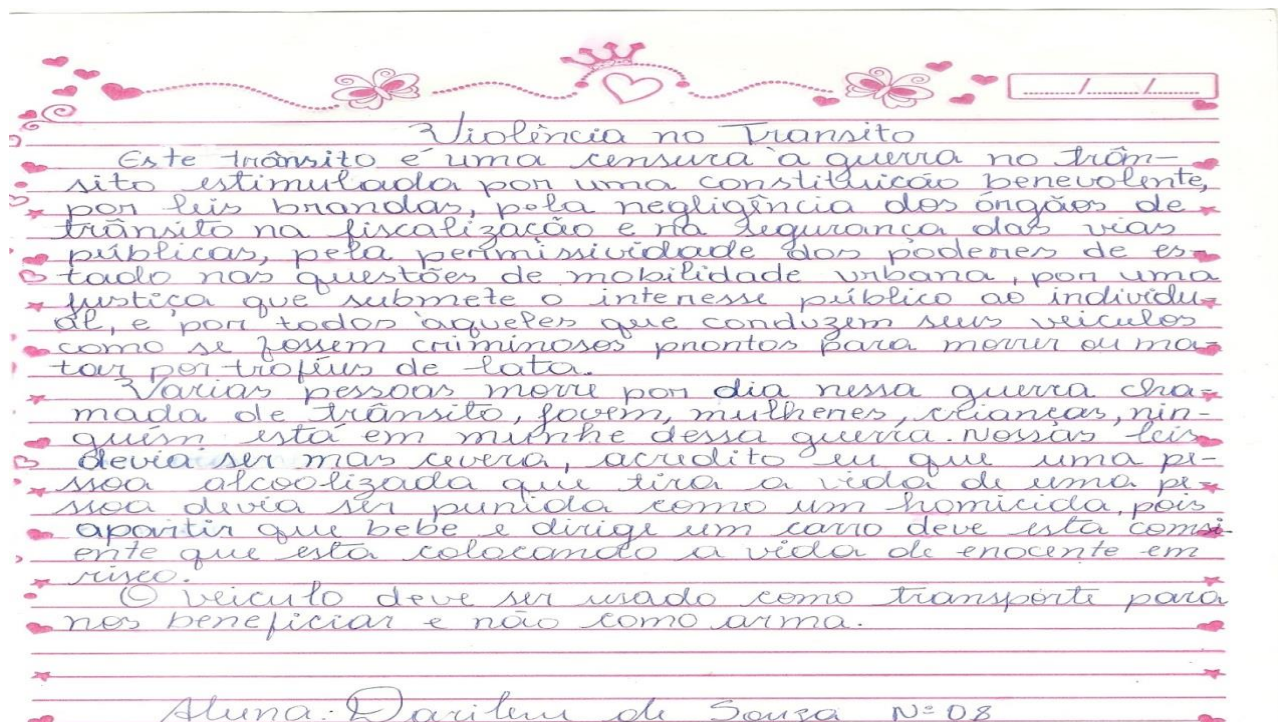 Violência no Transito
Este trânsito é uma censura à guerra no trân-
sito estimulada por uma constituição benevolente,
por leis brandas, pela negligência dos órgãos de
trânsito na fiscalização e na segurança das vias
públicas, pela permissividade dos poderes de es-
tado nas questões de mobilidade urbana, por uma
justiça que submete o interesse público ao individu-
al, e por todos aqueles que conduzem seus veiculos
como se fossem criminosos prontos para morrer ou ma-
tar por troféus de lata.
Varias pessoas morre por dia nessa guerra cha-
mada de trânsito, jovem, mulheres, crianças, nin-
guém está em munhe dessa guerra. Nossas leis
devia ser mas cevera, acredito eu que uma pe-
ssoa alcoolizada que tira a vida de uma pe-
ssoa devia ser punida como um homicida, pois
apartir que bebe e dirige um carro deve esta comsi-
ente que esta colocando a vida de enocente em
risco.
O veiculo deve ser usado como transporte para
nos beneficiar e não como arma.
Aluna: Darilene de Souza Nº 08